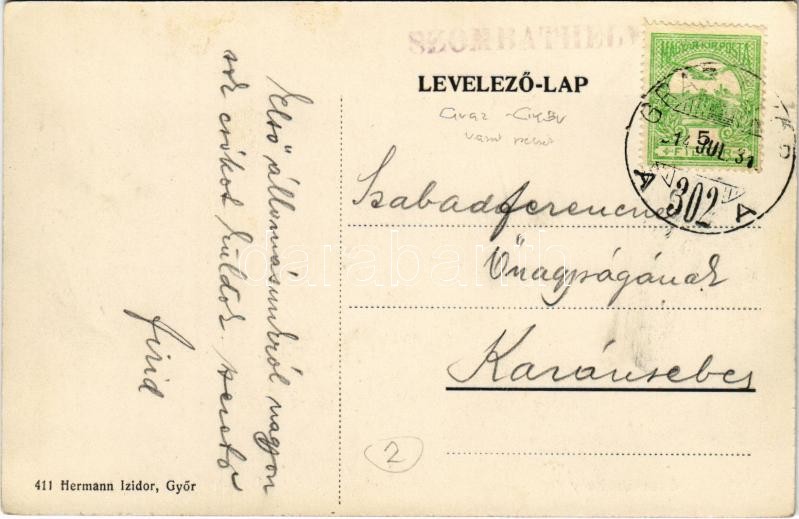 SZOMBATHELY
LEVELEZŐ-LAP
MAGYAR KIR. POSTA
5
914 JUL 31
302
A A
Graz - Győr
Szabadferencné
Őnagyságának
Karánsebes
Első állomásunkról nagyon
sok csókot küldök szerető
2
411 Hermann Izidor, Győr
darabanth